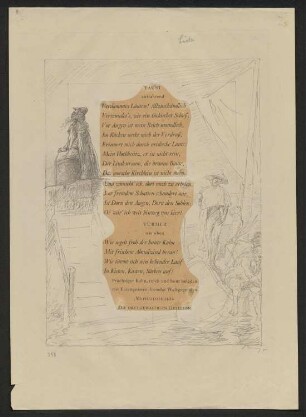 FAUST
auffahrend
Verdammtes Läuten! Allzuschändlich
Verwundet's, wie ein tückischer Schuß;
Vor Augen ist mein Reich unendlich,
Im Rücken neckt mich der Verdruß,
Erinnert mich durch neidische Laute:
Mein Hochbesitz, er ist nicht rein,
Der Lindenraum, die braune Baute,
Das morsche Kirchlein ist nicht mein.
Und wünscht' ich, dort mich zu erholen,
Vor fremden Schatten schaudert mir,
Ist Dorn den Augen, Dorn den Sohlen,
O! wär' ich weit hinweg von hier!
TÜRMER
wie oben
Wie segelt froh der bunte Kahn
Mit frischem Abendwind heran!
Wie türmt sich sein behender Lauf
In Kisten, Kasten, Säcken auf!
Prächtiger Kahn, reich und bunt beladen
mit Erzeugnissen fremder Weltgegenden
MEPHISTOPHELES
DIE DREI GEWALTIGEN GESELLEN